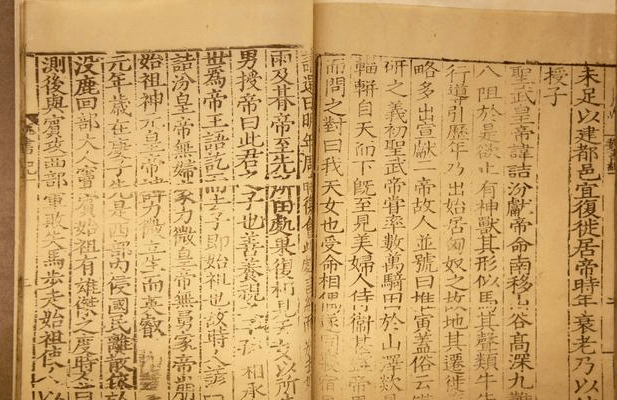 未足以建都邑宜復徙居帝時年衰老乃以
授子
聖武皇帝諱詰汾獻帝命南移山谷高深九難
八阻於是欲止有神獸其形似馬其聲類牛
行導引歷年乃出始居匈奴之故地其遷徙
略多出宣獻二帝故人並號曰推寅蓋俗云
研之義初聖武帝嘗率數萬騎田於山澤欻見
輜軿自天而下既至見美婦人侍衛甚盛帝
而問之對曰我天女也受命相偶遂同寢宿
請還曰明年周時復會此處
雨及朞帝至先所田處果復相見天女以所生
男授帝曰此君之子也善養視之子 相承
世為帝王語訖而去子即始祖也故時人諺曰
詰汾皇帝無婦家力微皇帝無舅家帝崩
始祖神元皇帝諱力微立生而英叡
元年歲在庚子先是西部內侵國民離散依於
沒鹿回部大人竇賓始祖有雄傑之度時人
測後與賓攻西部軍敗失馬步走始祖使人以